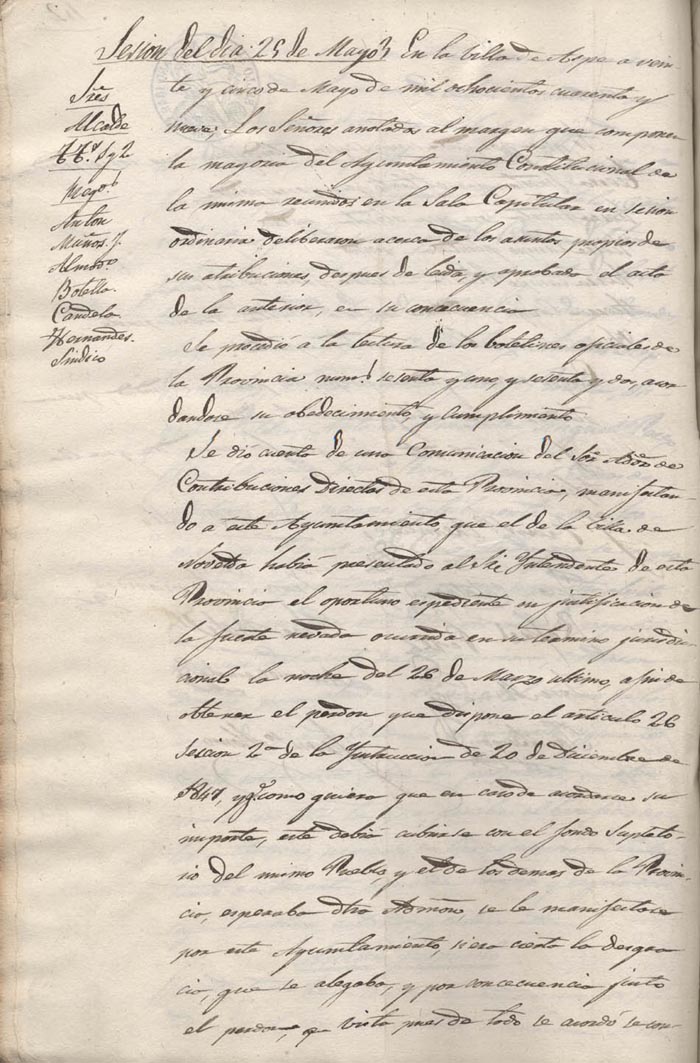 Sesion del dia 25 de Mayo} En la Villa de Aspe a vein-
te y cinco de Mayo de mil ochocientos cuarenta y
nueve, Los Señores anotados al margen que componen
la mayoria del Ayuntamiento Constitucional de
la misma reunidos en la Sala Capitular en sesion
ordinaria deliberaron acerca de los asuntos propios de
sus atribuciones, despues de leida, y aprobada el acta
de la anterior, en su concecuencia
Sres
Alcalde
TTs 1 y 2
Mayo
Anton
Muños
Almo
Botella
Candela
Hernandes
Sindico
Se procedió a la lectura de los boletines oficiales de
la Provincia nums sesenta y uno, y sesenta y dos, acor-
dandose su obedecimiento, y cumplimiento
Se dió cuenta de una Comunicacion del Sor Admor de
Contribuciones Directas de esta Provincia, manifestan-
do a este Ayuntamiento, que el de la Villa de
Novelda habia presentado al Sr Yntendente de esta
Provincia el oportuno espediente en justificacion de
la fuerte nevada ocurrida en su termino jurisdi-
cional la noche del 26 de Marzo ultimo, a fin de
obtener el perdon que dispone el articulo 26
seccion 2a de la Ynstruccion de 20 de Diciembre de
1847, y como quiera que en caso de acordarse su
importe, este debia cubrirse con el fondo supleto-
rio del mismo Pueblo, y el de los demas de la Provin-
cia, esperaba dho Admon se le manifestase
por este Ayuntamiento, si era cierta la desgra
cia, que se alegaba, y por concecuencia justo
el perdon, y vista pues de todo se acordó se con-